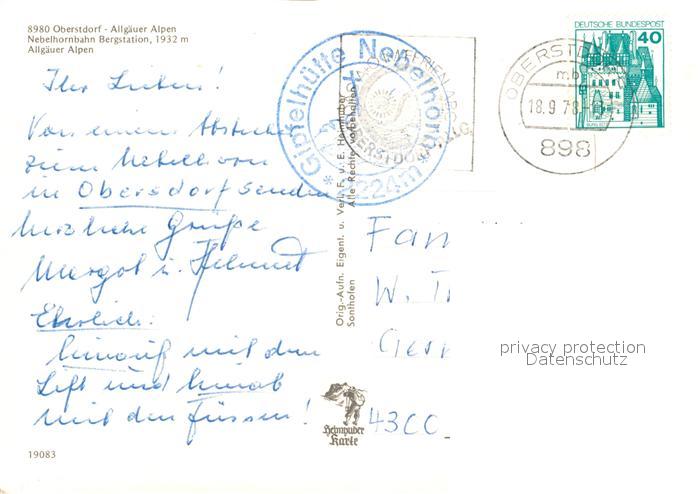 8980 Oberstdorf - Allgäuer Alpen
Nebelhornbahn Bergstation, 1932 m
Allgäuer Alpen
Ihr Lieben!
Von einem Abstecher
zum Nebelhorn
in Obersdorf senden
herzliche Grüße
Margot u. Helmut
Ehrlich:
hinauf mit dem
Lift und hinab
mit den Füssen!
19083
Gipfelhütte Nebelhorn
2224m
Orig.-Aufn. Eigenl. u. Verl. F. u. E. Heimhuber
Sonthofen
Alle Rechte vorbehalten
Heimhuber
Karte
DEUTSCHE BUNDESPOST
40
OBERSTDORF
18.9.78
898
Fam
W.
43CC
privacy protection
Datenschutz